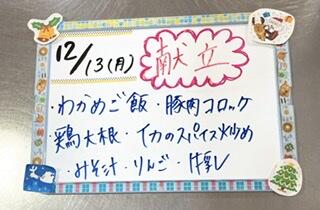 12/13(月) 献立
・わかめご飯・豚肉コロッケ
・鶏大根・イカのスパイス炒め
・みそ汁・りんご・牛乳